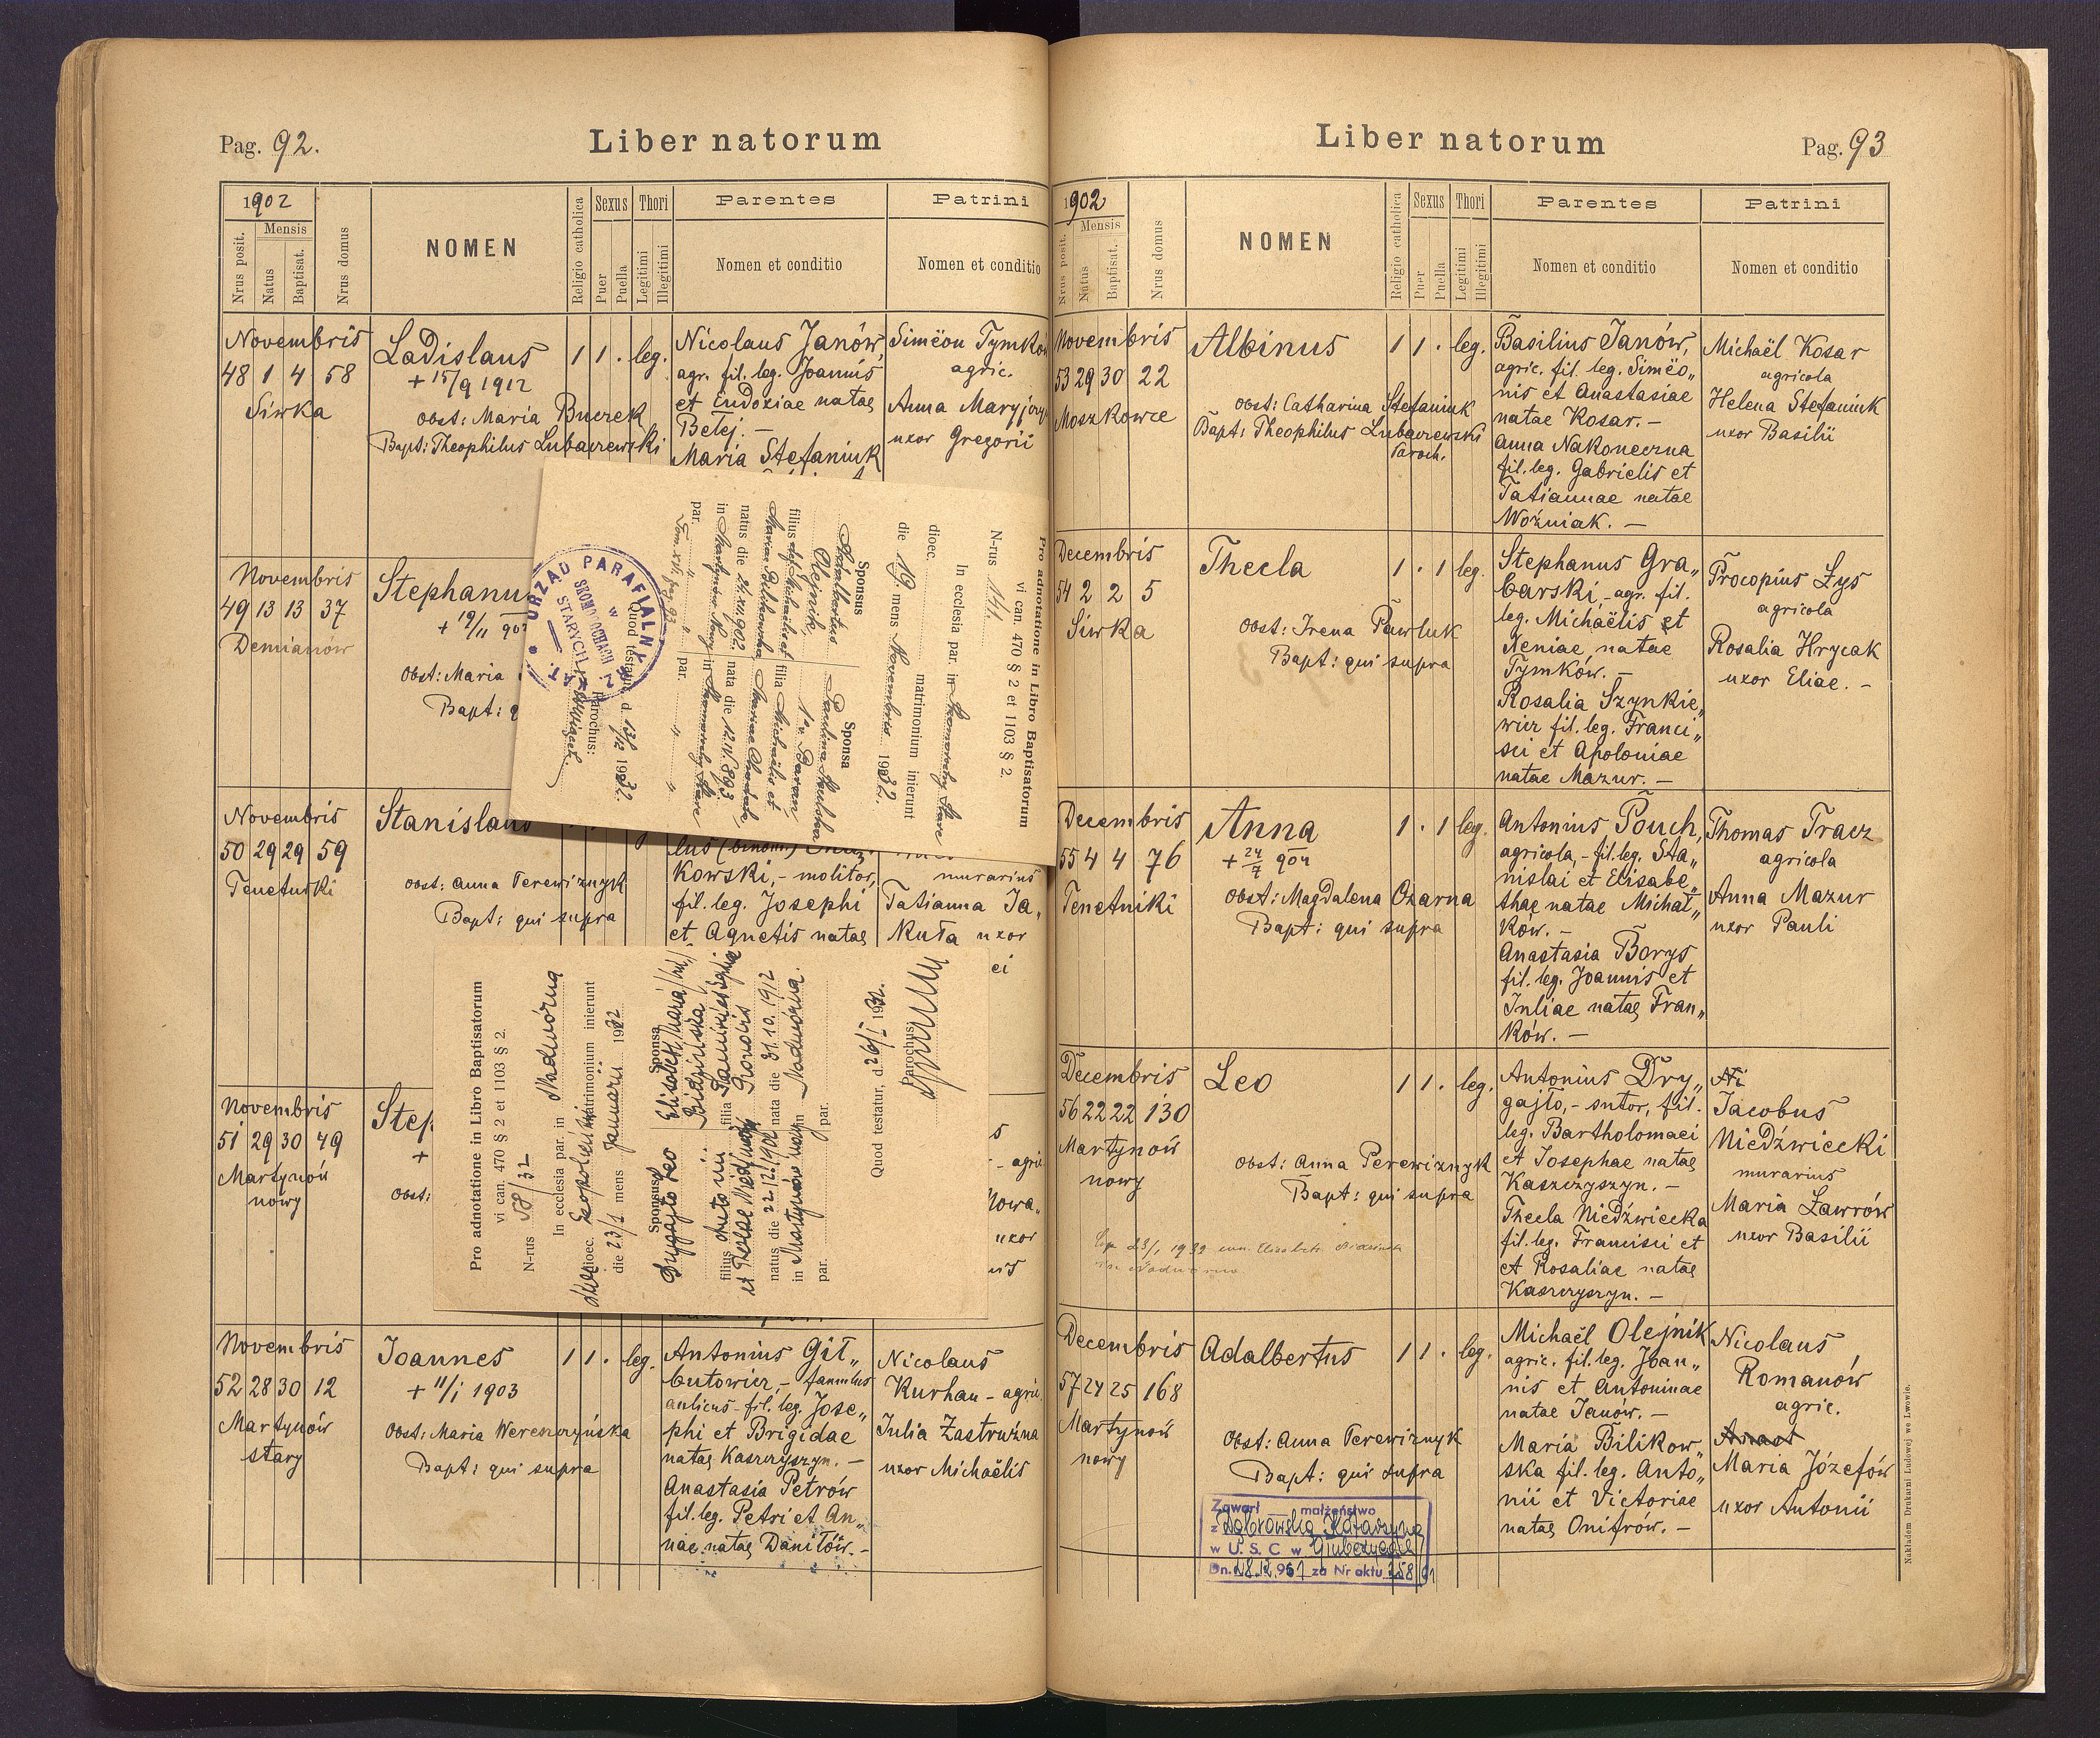 Pag. 92.
Liber natorum
1902
Mensis
Nrus posit.
Natus
Baptisat.
Nrus domus
NOMEN
Religio catholica
Sexus
Puer
Puella
Thori
Legitimi
Illegitimi
Parentes
Nomen et conditio
Patrini
Nomen et conditio
Novembris
48 1 4 58
Siwka
Ladislaus
+ 15/9 1912
obst: Maria Buczek
Bapt: Theophilus Lubaczewski
1 1 . leg.
Nicolaus Janów,
agr. fil. leg. Joannis
et Eudoxiae natae
Betej. –
Maria Stefaniuk
Simëon Tymków
agric.
Anna
uxor Gregorii
Novembris
49 13 13 37
Demianów
Stephanu
obst: Maria
Bapt: q
Novembris
50 29 29 59
Tenetniki
Stanislaus
obst: Anna Perewiznyk
Bapt: qui supra
kowski, – molitor,
fil. leg. Josephi
et Agnetis natae
murarius
Tatianna Ja„
kuta uxor
ei
Novembris
51 29 30 49
Martynów
nowy
Step
+
obst:
s
- agric
uxor
Novembris
52 28 30 12
Martynów
stary
Joannes
+ 11/1 1903
obst: Maria Wereszczyńska
Bapt: qui supra
1 1 . leg.
Antonius Git„
butowicz, – famulus
aulicus – fil. leg. Jose„
phi et Brigidae
natae Kaszczyszyn. –
Anastasia Petrów
fil. leg. Petri et An„
nae natae Daniłów. –
Nicolaus
Kurhan – agric.
Julia Zastrużna
uxor Michaëlis
Pro adnotatione in Libro Baptisatorum
vi can. 470 § 2 et 1103 § 2.
N-rus 141.
In ecclesia par. in Skomorochy Stare
dioec. matrimonium inierunt
die 19 mens Novembris 1932.
Sponsus
Adalbertus
Olejnik,
filius Michaëlis et
Maria Bilikowska
natus die 24.XII.902.
in Martynów Nowy
par.
Sponsa
Paulina
filia Michaëlis et
nata die 12.IV.893
in Skomorochy Stare
par.
Quod testatur, d. 13/12 1932.
Parochus:
URZĄD PARAFIALNY
w
SKOMOROCHACH
STARYCH
Pro adnotatione in Libro Baptisatorum
vi can. 470 § 2 et 1103 § 2.
N-rus 58/32
In ecclesia par. in Nadwórna
dioec. Leopoliensis matrimonium inierunt
die 23/1 mens Januarii 1932
Sponsus
Drygajło Leo
filius Antonii
natus die 22/12/1902
in Martynów nowy
par.
Sponsa
Elisabeth Maria
Bidzińska
filia
nata die 31.10.1912
in Nadwórna
par.
Quod testatur, d. 26/I 1932.
Parochus
Liber natorum
Pag. 93
1902
Mensis
Nrus posit.
Natus
Baptisat.
Nrus domus
NOMEN
Religio catholica
Sexus
Puer
Puella
Thori
Legitimi
Illegitimi
Parentes
Nomen et conditio
Patrini
Nomen et conditio
Novembris
53 29 30 22
Moszkowce
Albinus
obst: Catharina Stefaniuk
Bapt: Theophilus Lubaczewski
Paroch.
1 1 . leg.
Basilius Janów,
agric. fil. leg. Simëo„
nis et Anastasiae
natae Kosar. –
Anna Nakoneczna
fil. leg. Gabrielis et
Tatiannae natae
Woźniak. –
Michaël Kosar
agricola
Helena Stefaniuk
uxor Basilii
Decembris
54 2 2 5
Siwka
Thecla
obst: Irena Pawluk
Bapt: qui supra
1 . 1 leg.
Stephanus Gra„
barski, – agr. fil.
leg. Michaëlis et
Xeniae natae
Tymków. –
Rosalia Szynkie„
wicz fil. leg. Franci„
sci et Apoloniae
natae Mazur. –
Procopius Łys
agricola
Rosalia Hrycak
uxor Eliae. –
Decembris
55 4 4 76
Tenetniki
Anna
+ 24/7 904
obst: Magdalena Czarna
Bapt: qui supra
1 . 1 leg.
Antonius Pouch,
agricola, – fil. leg. Sta„
nislai et Elisabe„
thae natae Michał„
ków. –
Anastasia Borys
fil. leg. Joannis et
Juliae natae Fran„
ków. –
Thomas Tracz
agricola
Anna Mazur
uxor Pauli
Decembris
56 22 22 130
Martynów
nowy
Leo
obst: Anna Perewiznyk
Bapt: qui supra
23/1 1932 cum Elisabeth Bidzińska
in Nadwórna
1 1 . leg.
Antonius Dry„
gajło, – sutor, fil.
leg. Bartholomaei
et Josephae natae
Kaszczyszyn. –
Thecla Niedźwiecka
fil. leg. Francisci et
et Rosaliae natae
Kaszczyszyn. –
Ni
Jacobus
Niedźwiecki
murarius
Maria Ławrów
uxor Basilii
Decembris
57 24 25 168
Martynów
nowy
Adalbertus
obst: Anna Perewiznyk
Bapt: qui supra
1 1 . leg.
Michaël Olejnik
agric. fil. leg. Joan„
nis et Antoninae
natae Janów. –
Maria Bilikow„
ska fil. leg. Anto„
nii et Victoriae
natae Onifrów. –
Nicolaus
Romanów
agric.
Anast
Maria Józefów
uxor Antonii
Zawarł małżeństwo
z Dąbrowską Katarzyną
w U. S. C w Głubczycach
Dn. 28.12.961 za Nr aktu 258/61
Nakładem Drukarni Ludowej we Lwowie.